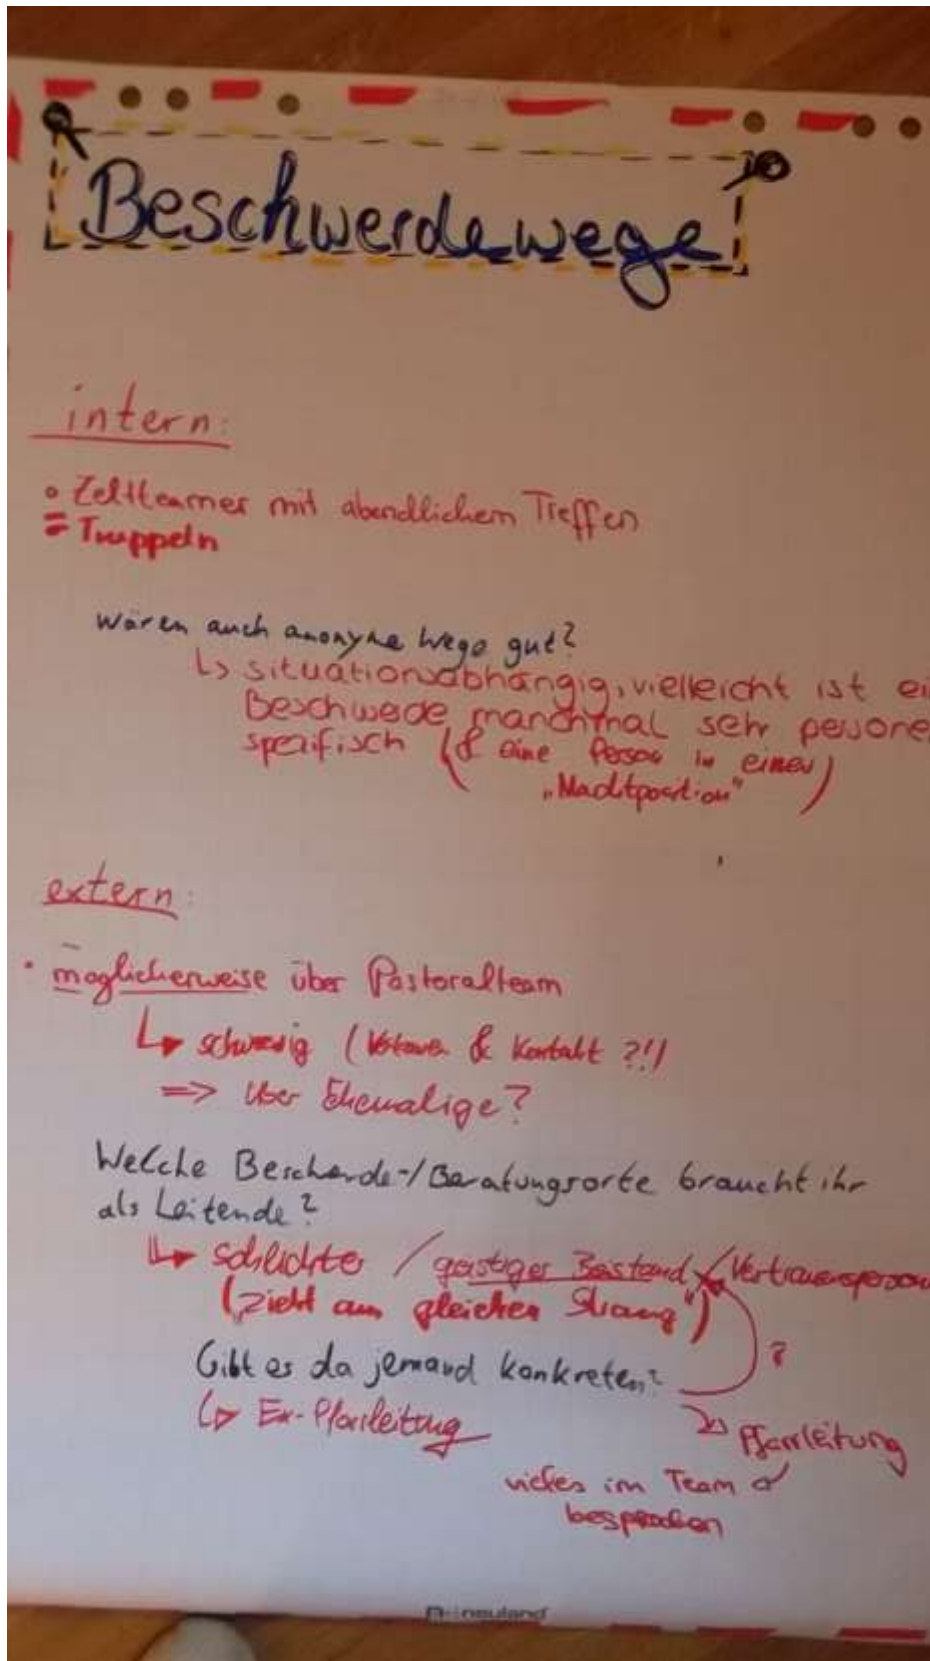 Beschwerdewege
intern:
Zeltteamer mit abendlichem Treffen
= Truppeln
wären auch anonyme Wege gut?
↳ situationsabhängig, vielleicht ist ei
Beschwede manchmal sehr persone
spezifisch (& eine Person in einer)
"Machtposition"
extern:
• möglicherweise über Pastoralteam
↳ schwierig (& Kontakt ?!)
=> über Ehemalige?
Welche Beschwerde-/Beratungsorte braucht ihr
als Leitende?
↳ schlichter / geistiger Beistand / Vertrauensperson
(zieht am gleichen Strang")
?
Gibt es da jemand konkreten?
↳ Ex-Pfarrleitung
↳ Pfarrleitung
vieles im Team
besprochen
neuland